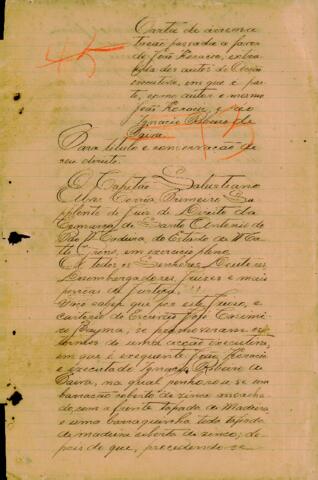 Carta de arrema
tação passada a favor
de João Horacio, extra
hida dos autos de Acção
executiva, em que é par
te como autor o mesmo
João Horacio, e réo
Ignacio Ribeiro de
Paiva.
Para titulo e conservação de
seu direito.
O Capitão Salustiano
Alves Corrêa Primeiro Su
pplente do Juiz de Direito da
Comarca de Santo Antonio do
Rio Madeira, do Estado de Matto
Grosso, em exercicio pleno
A todos os Senhores Doutores
Desembargadores, Juizes e mais
pessoas da Justiça
Faço saber que por este Juizo, e
cartorio do Escrivão José
se promoveram os
termos de uma acção executiva,
em que é exequente João Horacio
e executado Ignacio Ribeiro de
Paiva, na qual penhorou-se um
barracão coberto de zinco
com a frente tapada de Madeira
e uma barraquinha toda tapada
de madeira coberta de zinco; de
pois do que, procedendo-se